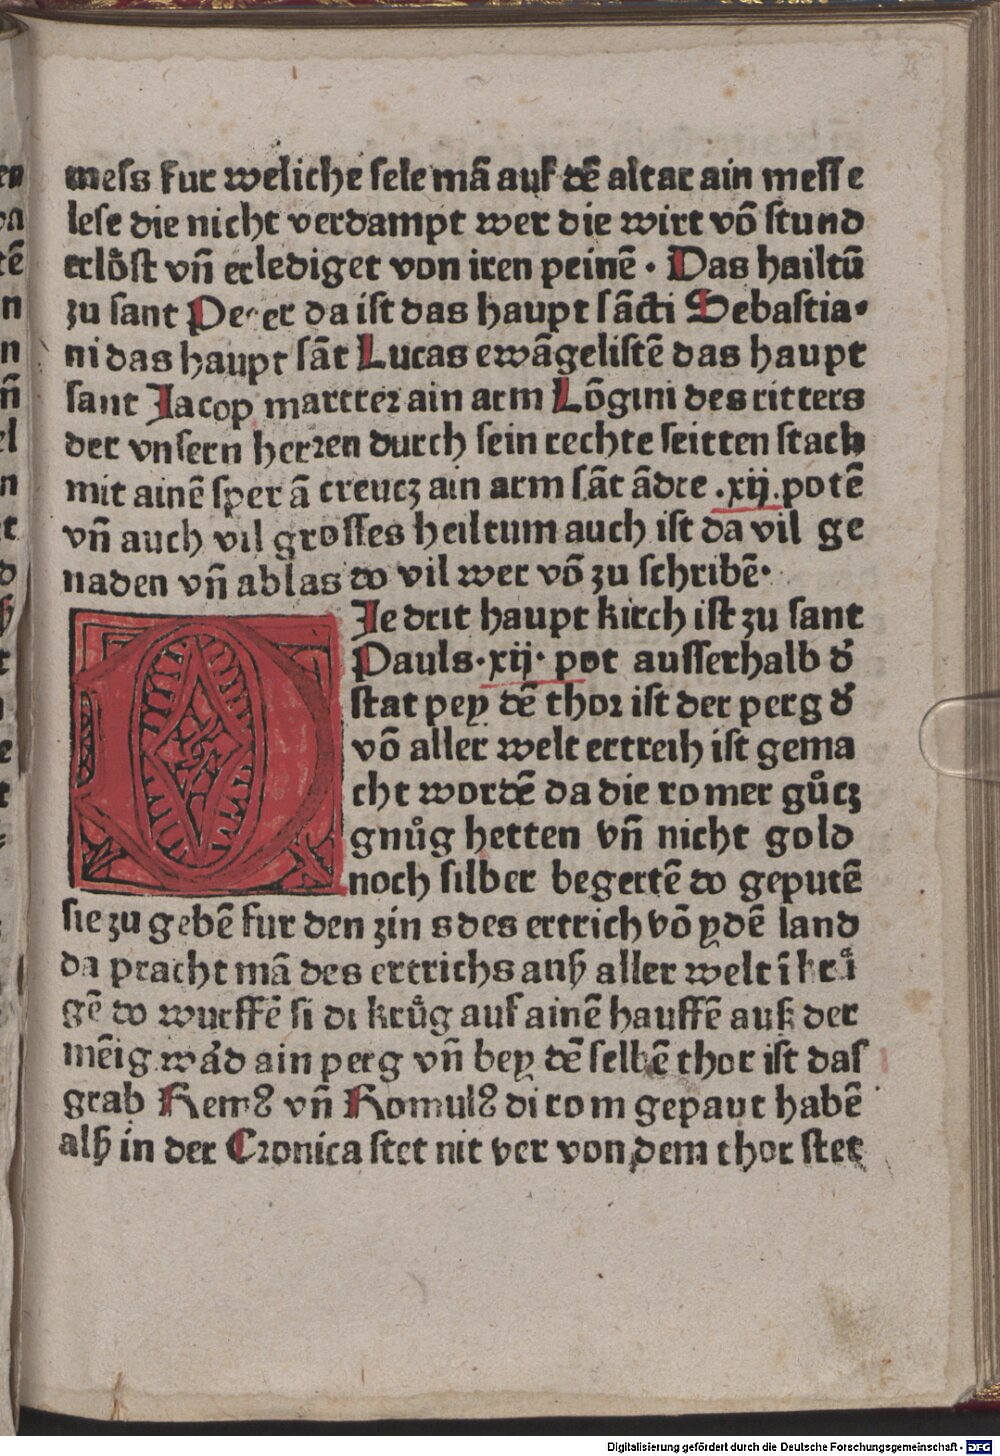 mess fur weliche sele mā auf dē altar ain messe
lese die nicht verdampt wer die wirt vō stund
erlo̊st vn̄ erlediget von iren peinē · Das hailtū
zu sant Peter da ist das haupt sācti Sebastia⸗
ni das haupt sāt Lucas ewāgelistē das haupt
sant Jacop martrer ain arm Lōgini des ritters
der vnsern herren durch sein rechte seitten stach
mit ainē sper ā creucz ain arm sāt ādre .xij. potē
vn̄ auch vil grosses heiltum auch ist da vil ge
naden vn̄ ablas do vil wer vō zu schribē·
DJe drit haupt kirch ist zu sant
Pauls·xij· pot ausserhalb d̕
stat pey dē thor ist der perg d̕
vō aller welt ertreih ist gema
cht wordē da die romer gůcz
gnůg hetten vn̄ nicht gold
noch silber begertē do geputē
sie zu gebē fur den zins des ertrich vō ydē land
da pracht mā des ertrichs auß aller welt ī krů
gē do wurffē si di krůg auf ainē hauffē auß der
mēig wa̍d ain perg vn̄ bey dē selbē thor ist das
grab Remꝰ vn̄ Romulꝰ di rom gepaut habē
alß in der Cronica stet nit ver von dem thor stet
Digitalisierung gefördert durch die Deutsche Forschungsgemeinschaft - DFG